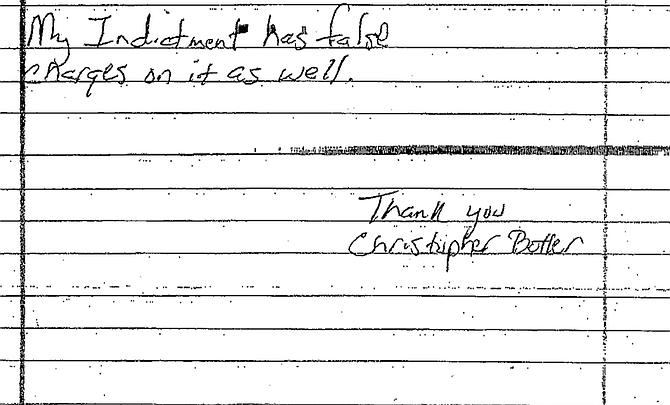 My Indictment has false
charges on it as well.
Thank you
Christopher